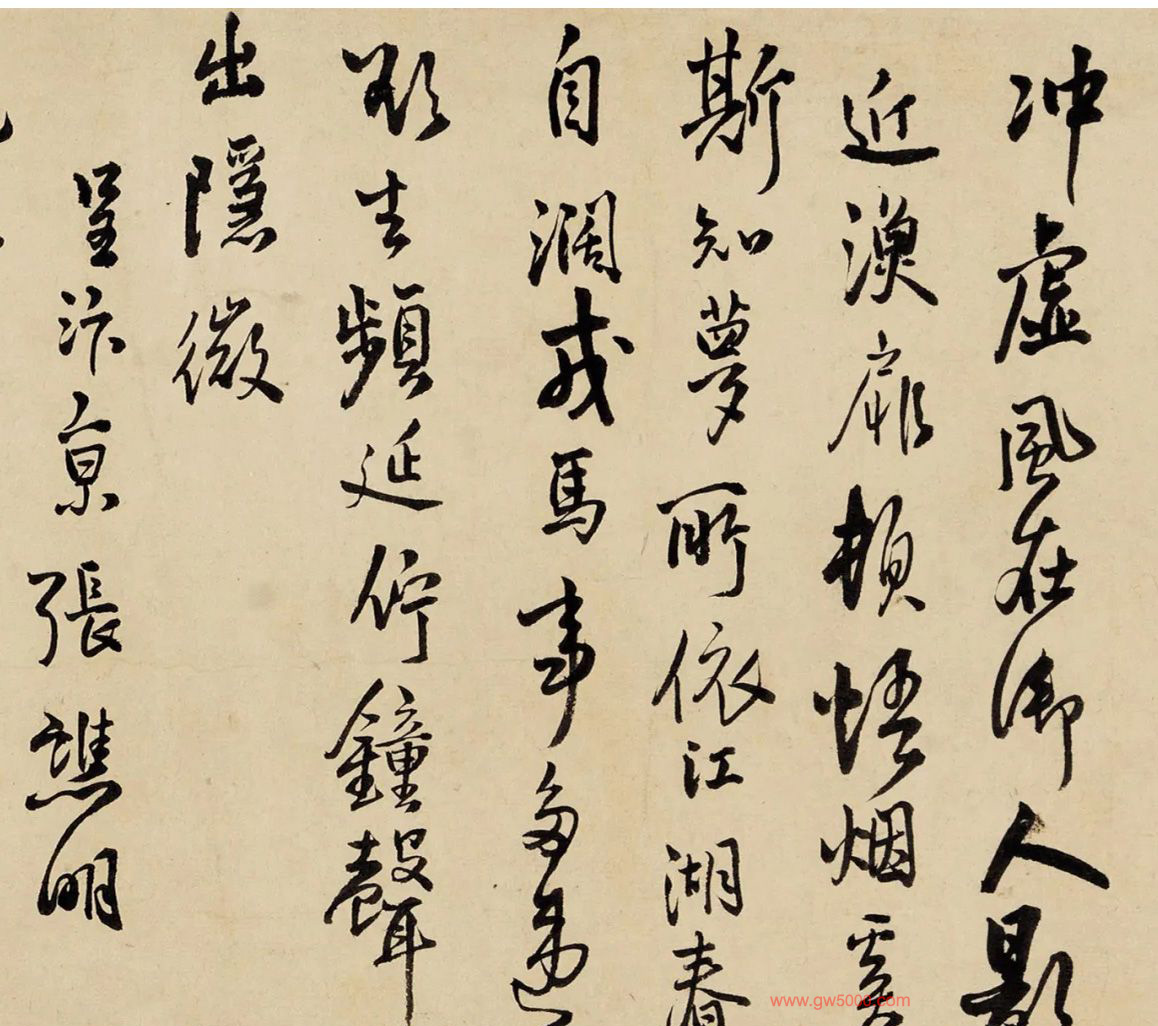 冲虛風在御人影
近漁扉頓悟烟霞
斯知夢所依江湖春
自濶戎馬事多違
歇去頻延佇鐘聲
出隱微
呈汴京張譙明
www.gw5000.com